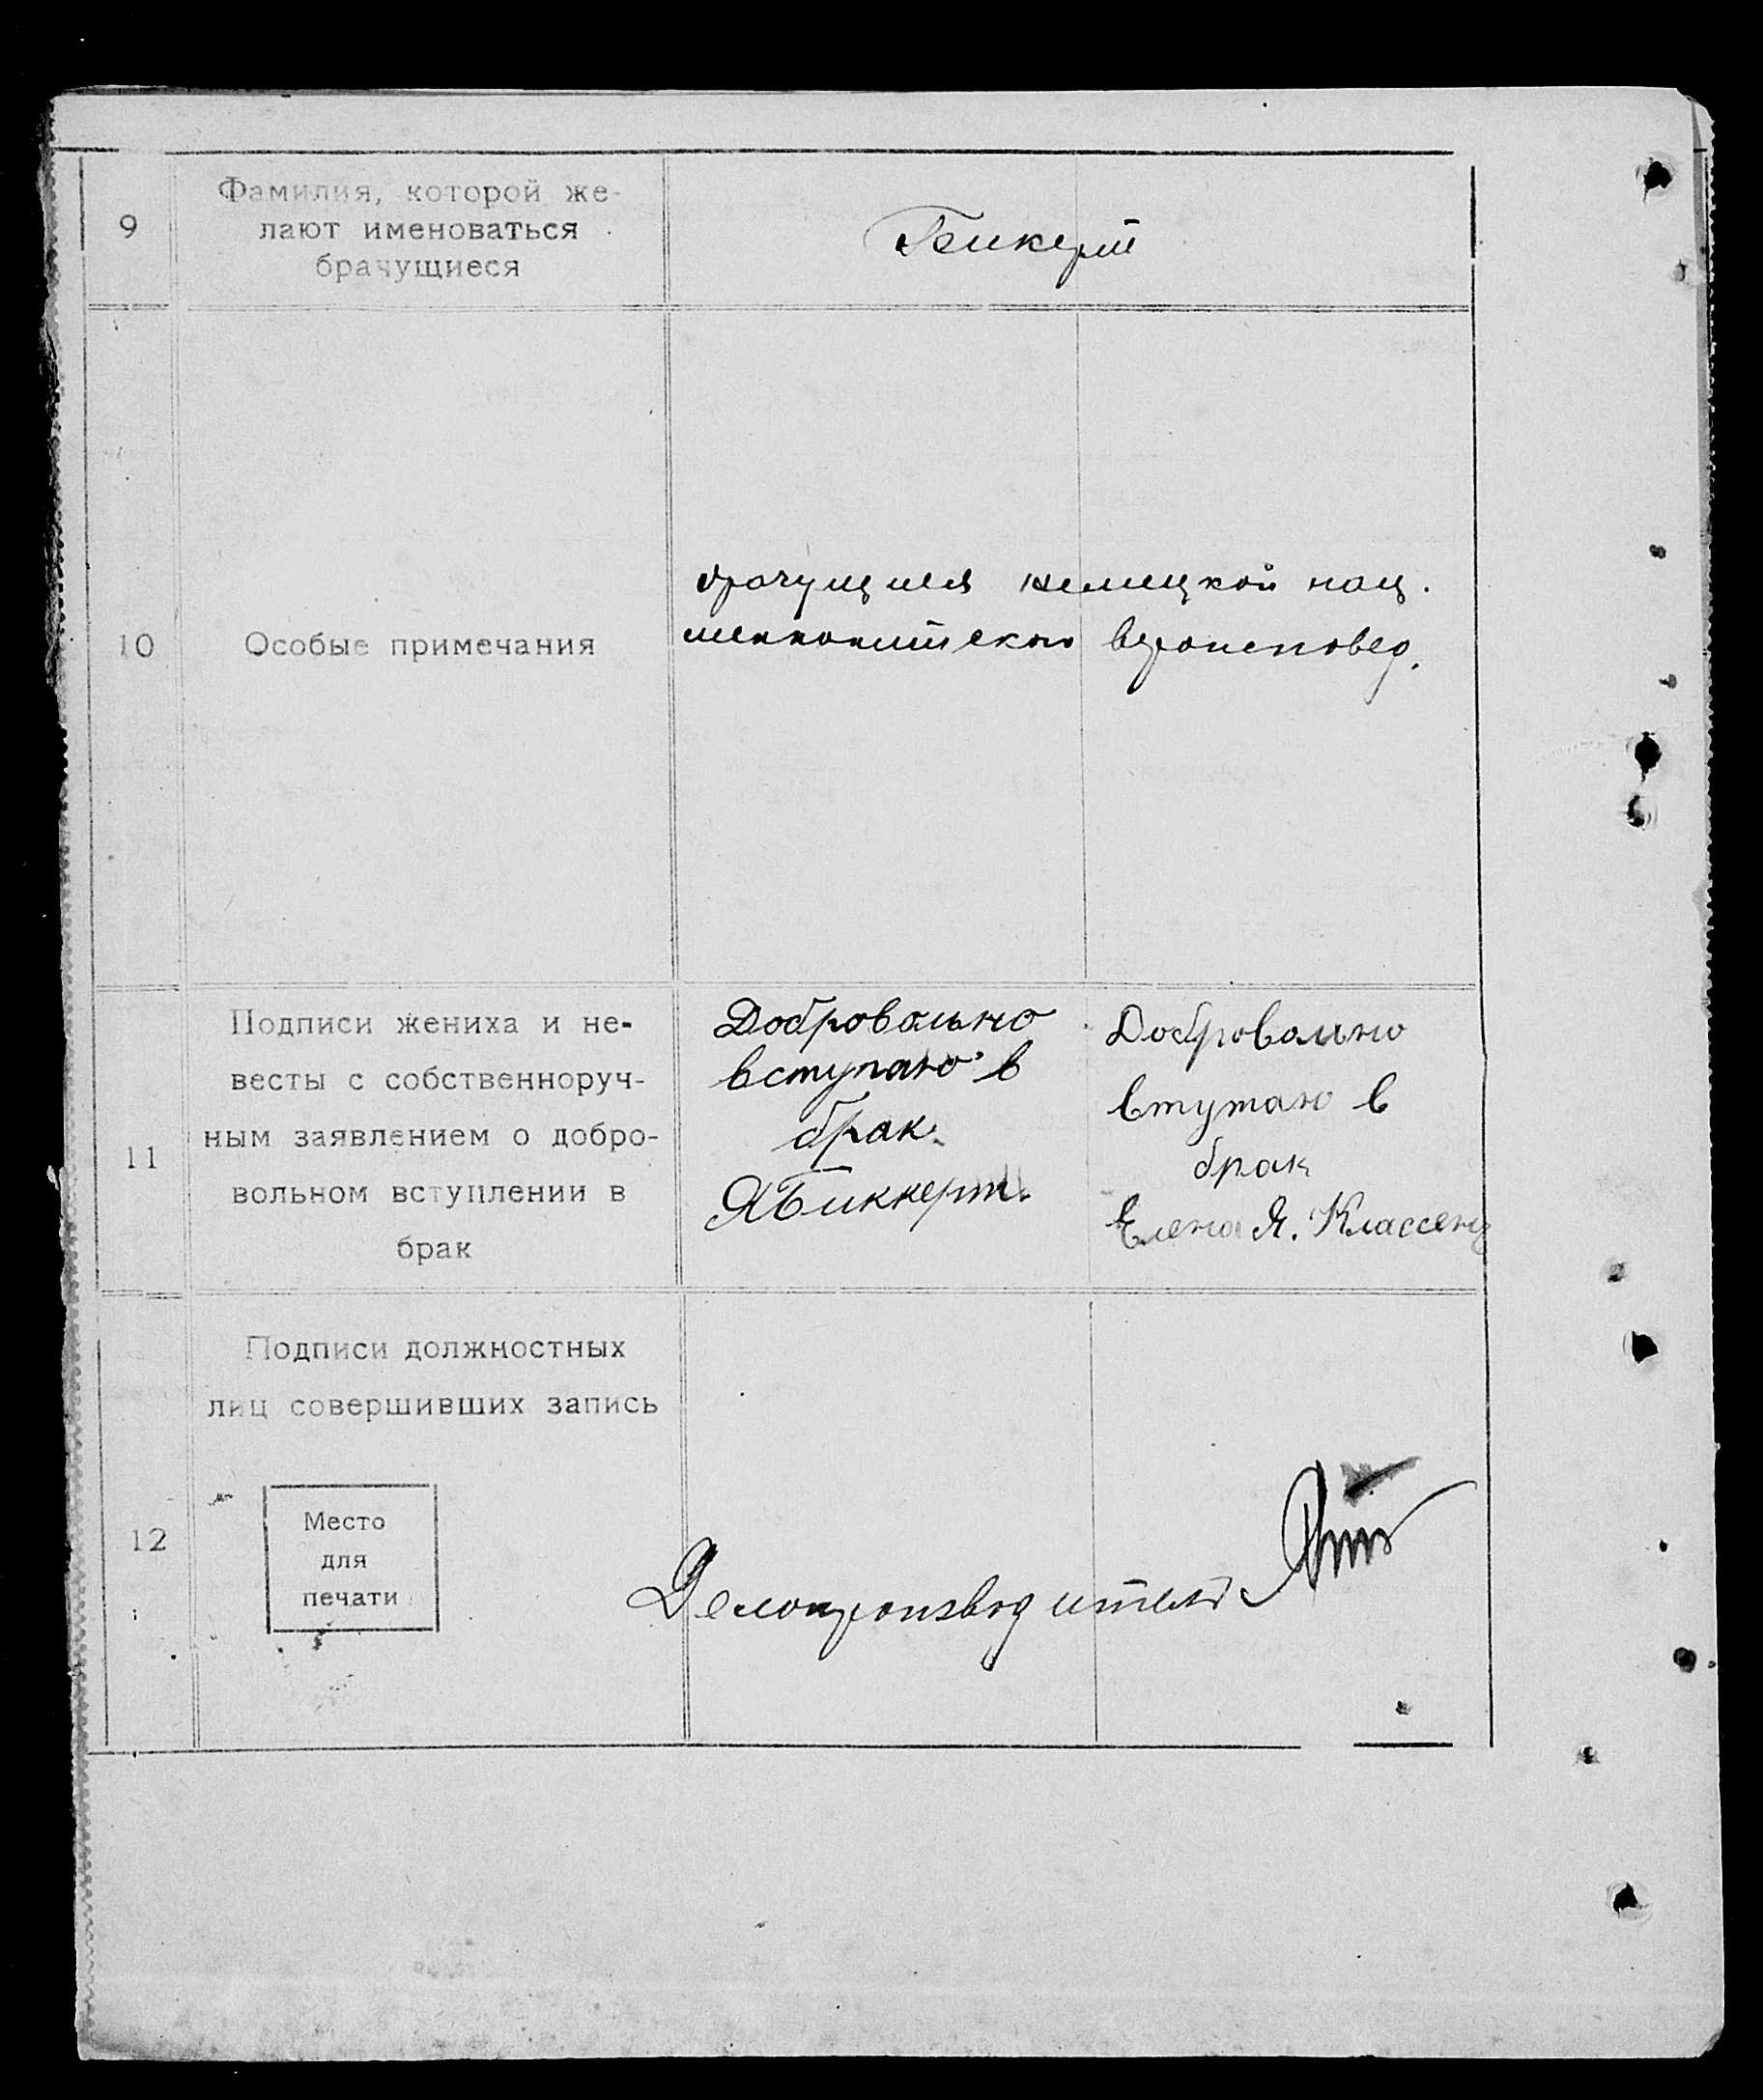 9
Фамилия, которой же-
лают именоваться
брачущиеся
Бикерт
10
Особые примечания
брачущиеся немецкой нац.
меннонитском вероисповед.
11
Подписи жениха и не-
весты с собственноруч-
ным заявлением о добро-
вольном вступлении в
брак
Добровольно
вступаю в
брак.
Я Биккерт.
Добровольно
втупаю в
брак
Елена Я. Классен
12
Подписи должностных
лиц совершивших запись
Место
для
печати
Делопроизводитель